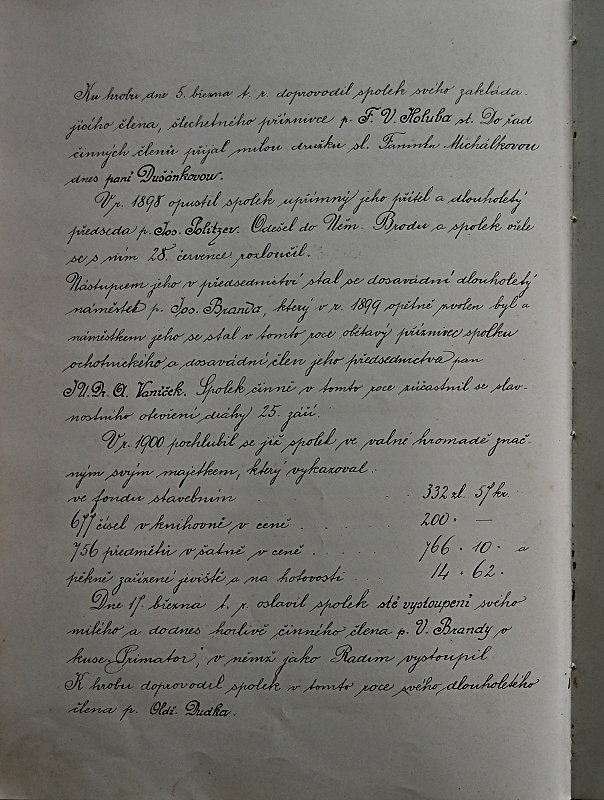 Ku hrobu dne 5. března t. r. doprovodil spolek svého zakláda-
jícího člena, šlechetného příznivce p. F. V. Holuba st. Do řad
činných členů přijal milou družku sl. Faninku Michálkovou
dnes paní Dušánkovou.
V r. 1898 opustil spolek upřímný jeho přítel a dlouholetý
předseda p. Jos. Politzer. Odešel do Něm. Brodu a spolek vřele
se s ním 28. července rozloučil.
Nástupcem jeho v předsednictví stal se dosavádní dlouholetý
náměstek p. Jos. Branda, který v r. 1899 opětně zvolen byl a
náměstkem jeho se stal v tomto roce obětavý příznivec spolku
ochotnického a dosavádní člen jeho předsednictva pan
JU.Dr. A. Vaníček. Spolek činně v tomto roce zúčastnil se slav-
nostního otevření dráhy 25. září.
V r. 1900 pochlubil se již spolek ve valné hromadě znač-
ným svým majetkem, který vykazoval:
ve fondu stavebním . . . . . 332 zl. 57 kr.
677 čísel v knihovně v ceně . . . . . 200 · —
756 předmětů v šatně v ceně . . . . 766 · 10 · a
pěkně zařízené jeviště a na hotovosti . . . 14 · 62 ·
Dne 17. března t. r. oslavil spolek sté vystoupení svého
milého a dodnes horlivě činného člena p. V. Brandy v
kuse „Primator", v němž jako Radim vystoupil.
K hrobu doprovodil spolek v tomto roce svého dlouholetého
člena p. Old. Dudka.